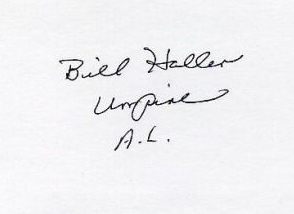 Bill Haller
Umpire
A.L.